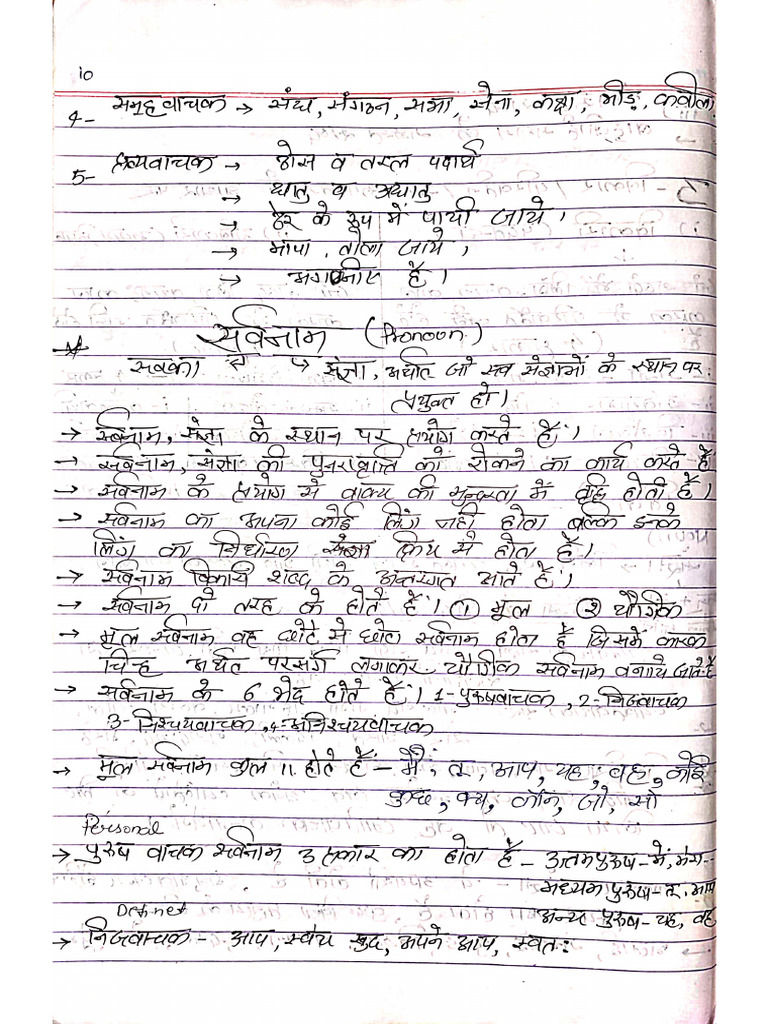 10
4- समूहवाचक → संघ, संगठन, सभा, सेना, कक्षा, भीड़, कबीला
5- द्रव्यवाचक → ठोस व तरल पदार्थ
→ धातु व अधातु
→ ढेर के रूप में पायी जाये।
→ मापा, तोला जाये,
→ अगणनीय हैं।
सर्वनाम (Pronoun)
सबका → संज्ञा, अर्थात जो सब संज्ञाओं के स्थान पर
प्रयुक्त हो।
→ सर्वनाम, संज्ञा के स्थान पर प्रयोग करते हैं।
→ सर्वनाम, संज्ञा की पुनरावृत्ति को रोकने का कार्य करते हैं
→ सर्वनाम के प्रयोग से वाक्य की सुन्दरता में वृद्धि होती है।
→ सर्वनाम का अपना कोई लिंग नहीं होता बल्कि इनके
लिंग का निर्धारण क्रिय से होता है।
→ सर्वनाम विकारी शब्द के अन्तरगत आते हैं।
→ सर्वनाम दो तरह के होते हैं। (1) मूल (2) यौगिक
→ मूल सर्वनाम वह छोटे से छोटा सर्वनाम होता है जिसमें कारक
चिन्ह अर्थात परसर्ग लगाकर यौगिक सर्वनाम बनाये जाते हैं
→ सर्वनाम के 6 भेद होते हैं। 1- पुरुषवाचक, 2- निजवाचक
3- निश्चयवाचक, 4- अनिश्चयवाचक
→ मूल सर्वनाम कुल 11 होते हैं - मैं, तू, आप, यह, वह, कोई
कुछ, क्य, कौन, जो, सो
Personal
→ पुरुष वाचक सर्वनाम 3 प्रकार का होता है - उत्तमपुरुष - में, मेरा--
मध्यम पुरुष - तू, आप
अन्य पुरुष - यह, वह
Definet
→ निजवाचक - आप, स्वंय खुद, अपने आप, स्वतः